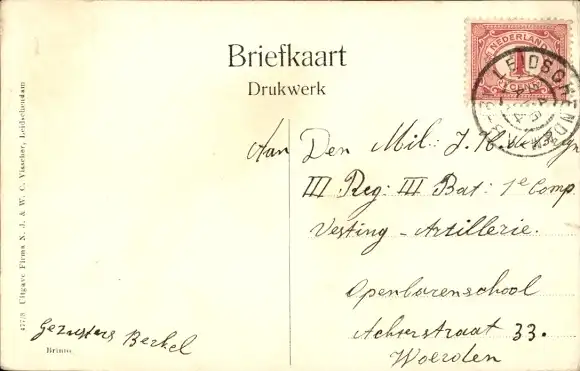 Briefkaart
Drukwerk
NEDERLAND
1
LEIDSCHENDAM
Aan Den Mil: J. H.
III Reg: III Bat: 1e Comp
Vesting - Artillerie.
Openbarenschool
Achterstraat 33.
Woerden
Gezusters Berkel
Brinno
477/8 Uitgave Firma N. J. & W. C. Visscher, Leidschendam